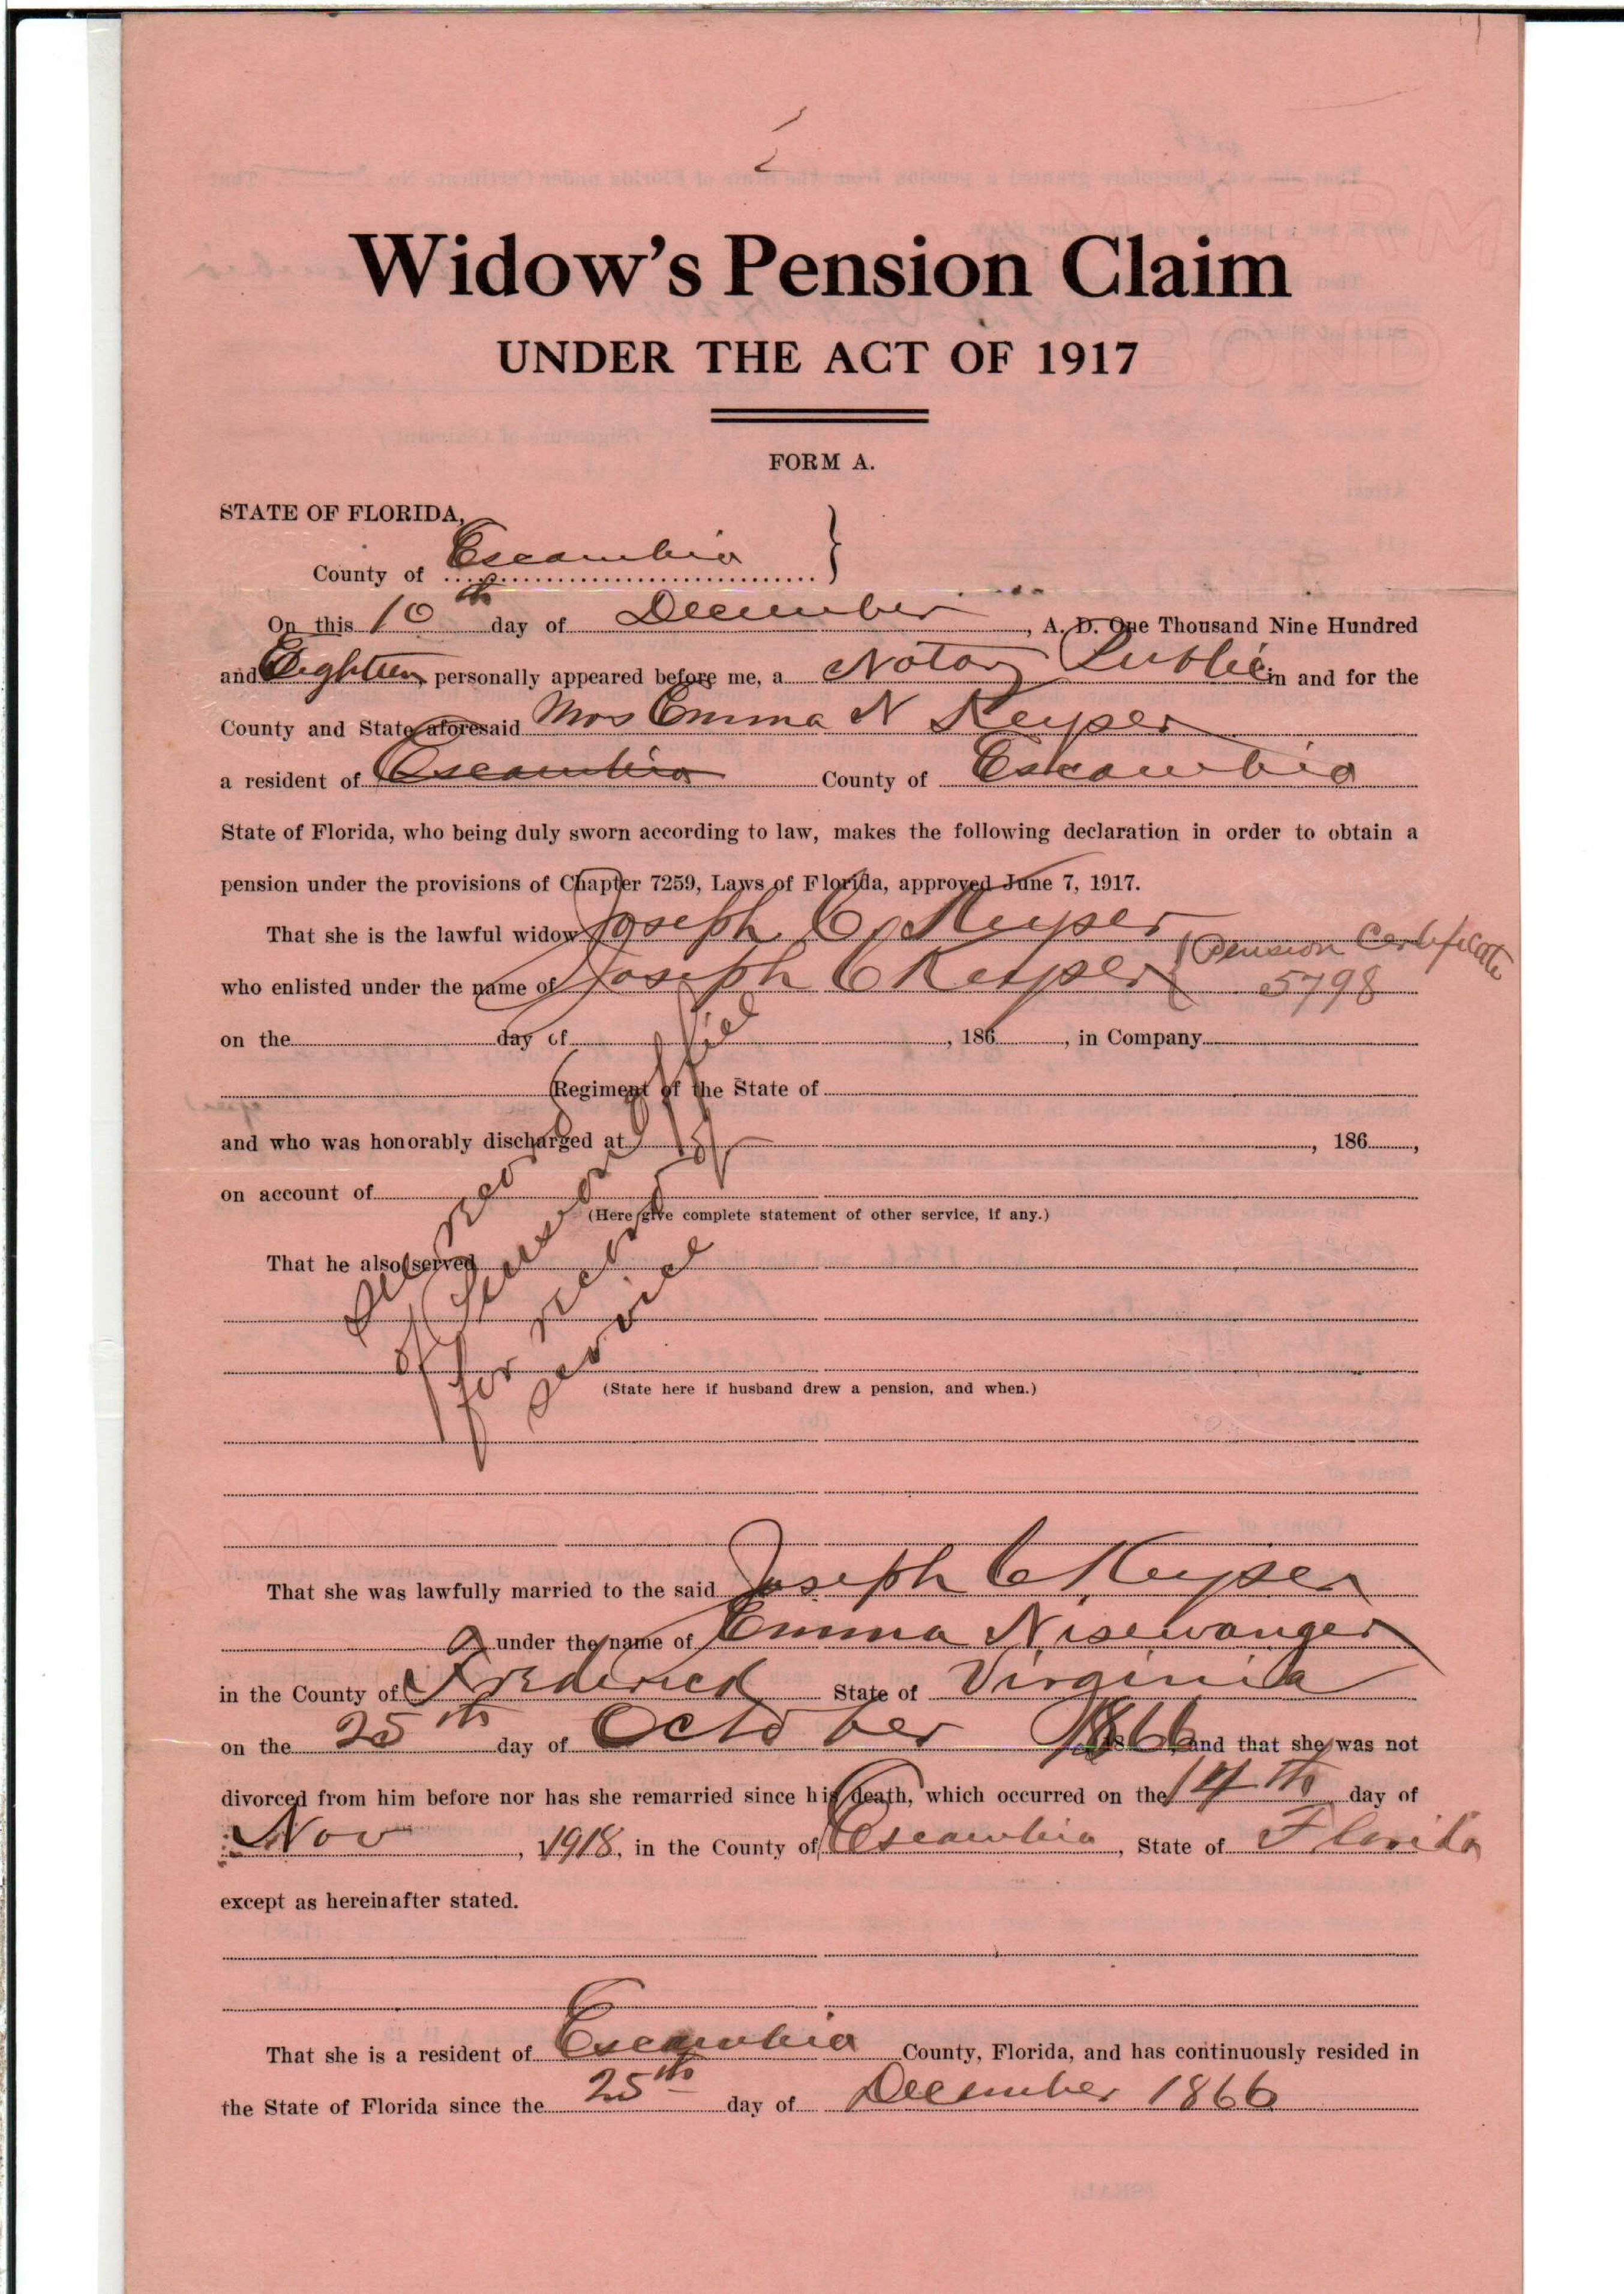 Widow's Pension Claim
UNDER THE ACT OF 1917
FORM A.
STATE OF FLORIDA,
County of Escambia }
On this 10th day of December, A. D. One Thousand Nine Hundred
and Eighteen personally appeared before me, a Notary Public in and for the
County and State aforesaid Mrs Emma N Keyser
a resident of Escambia County of Escambia
State of Florida, who being duly sworn according to law, makes the following declaration in order to obtain a
pension under the provisions of Chapter 7259, Laws of Florida, approved June 7, 1917.
That she is the lawful widow Joseph C. Keyser
who enlisted under the name of Joseph C Keyser (Pension Certificate 5798
on the day of , 186 , in Company
Regiment of the State of
and who was honorably discharged at , 186 ,
on account of
(Here give complete statement of other service, if any.)
That he also served
See Rec on file
of
for Record of
service
(State here if husband drew a pension, and when.)
That she was lawfully married to the said Joseph C Keyser
under the name of Emma Nisewanger
in the County of Frederick State of Virginia
on the 25th day of October 1866 and that she was not
divorced from him before nor has she remarried since his death, which occurred on the 14th day of
Nov , 1918, in the County of Escambia, State of Florida
except as hereinafter stated.
That she is a resident of Escambia County, Florida, and has continuously resided in
the State of Florida since the 25th day of December 1866